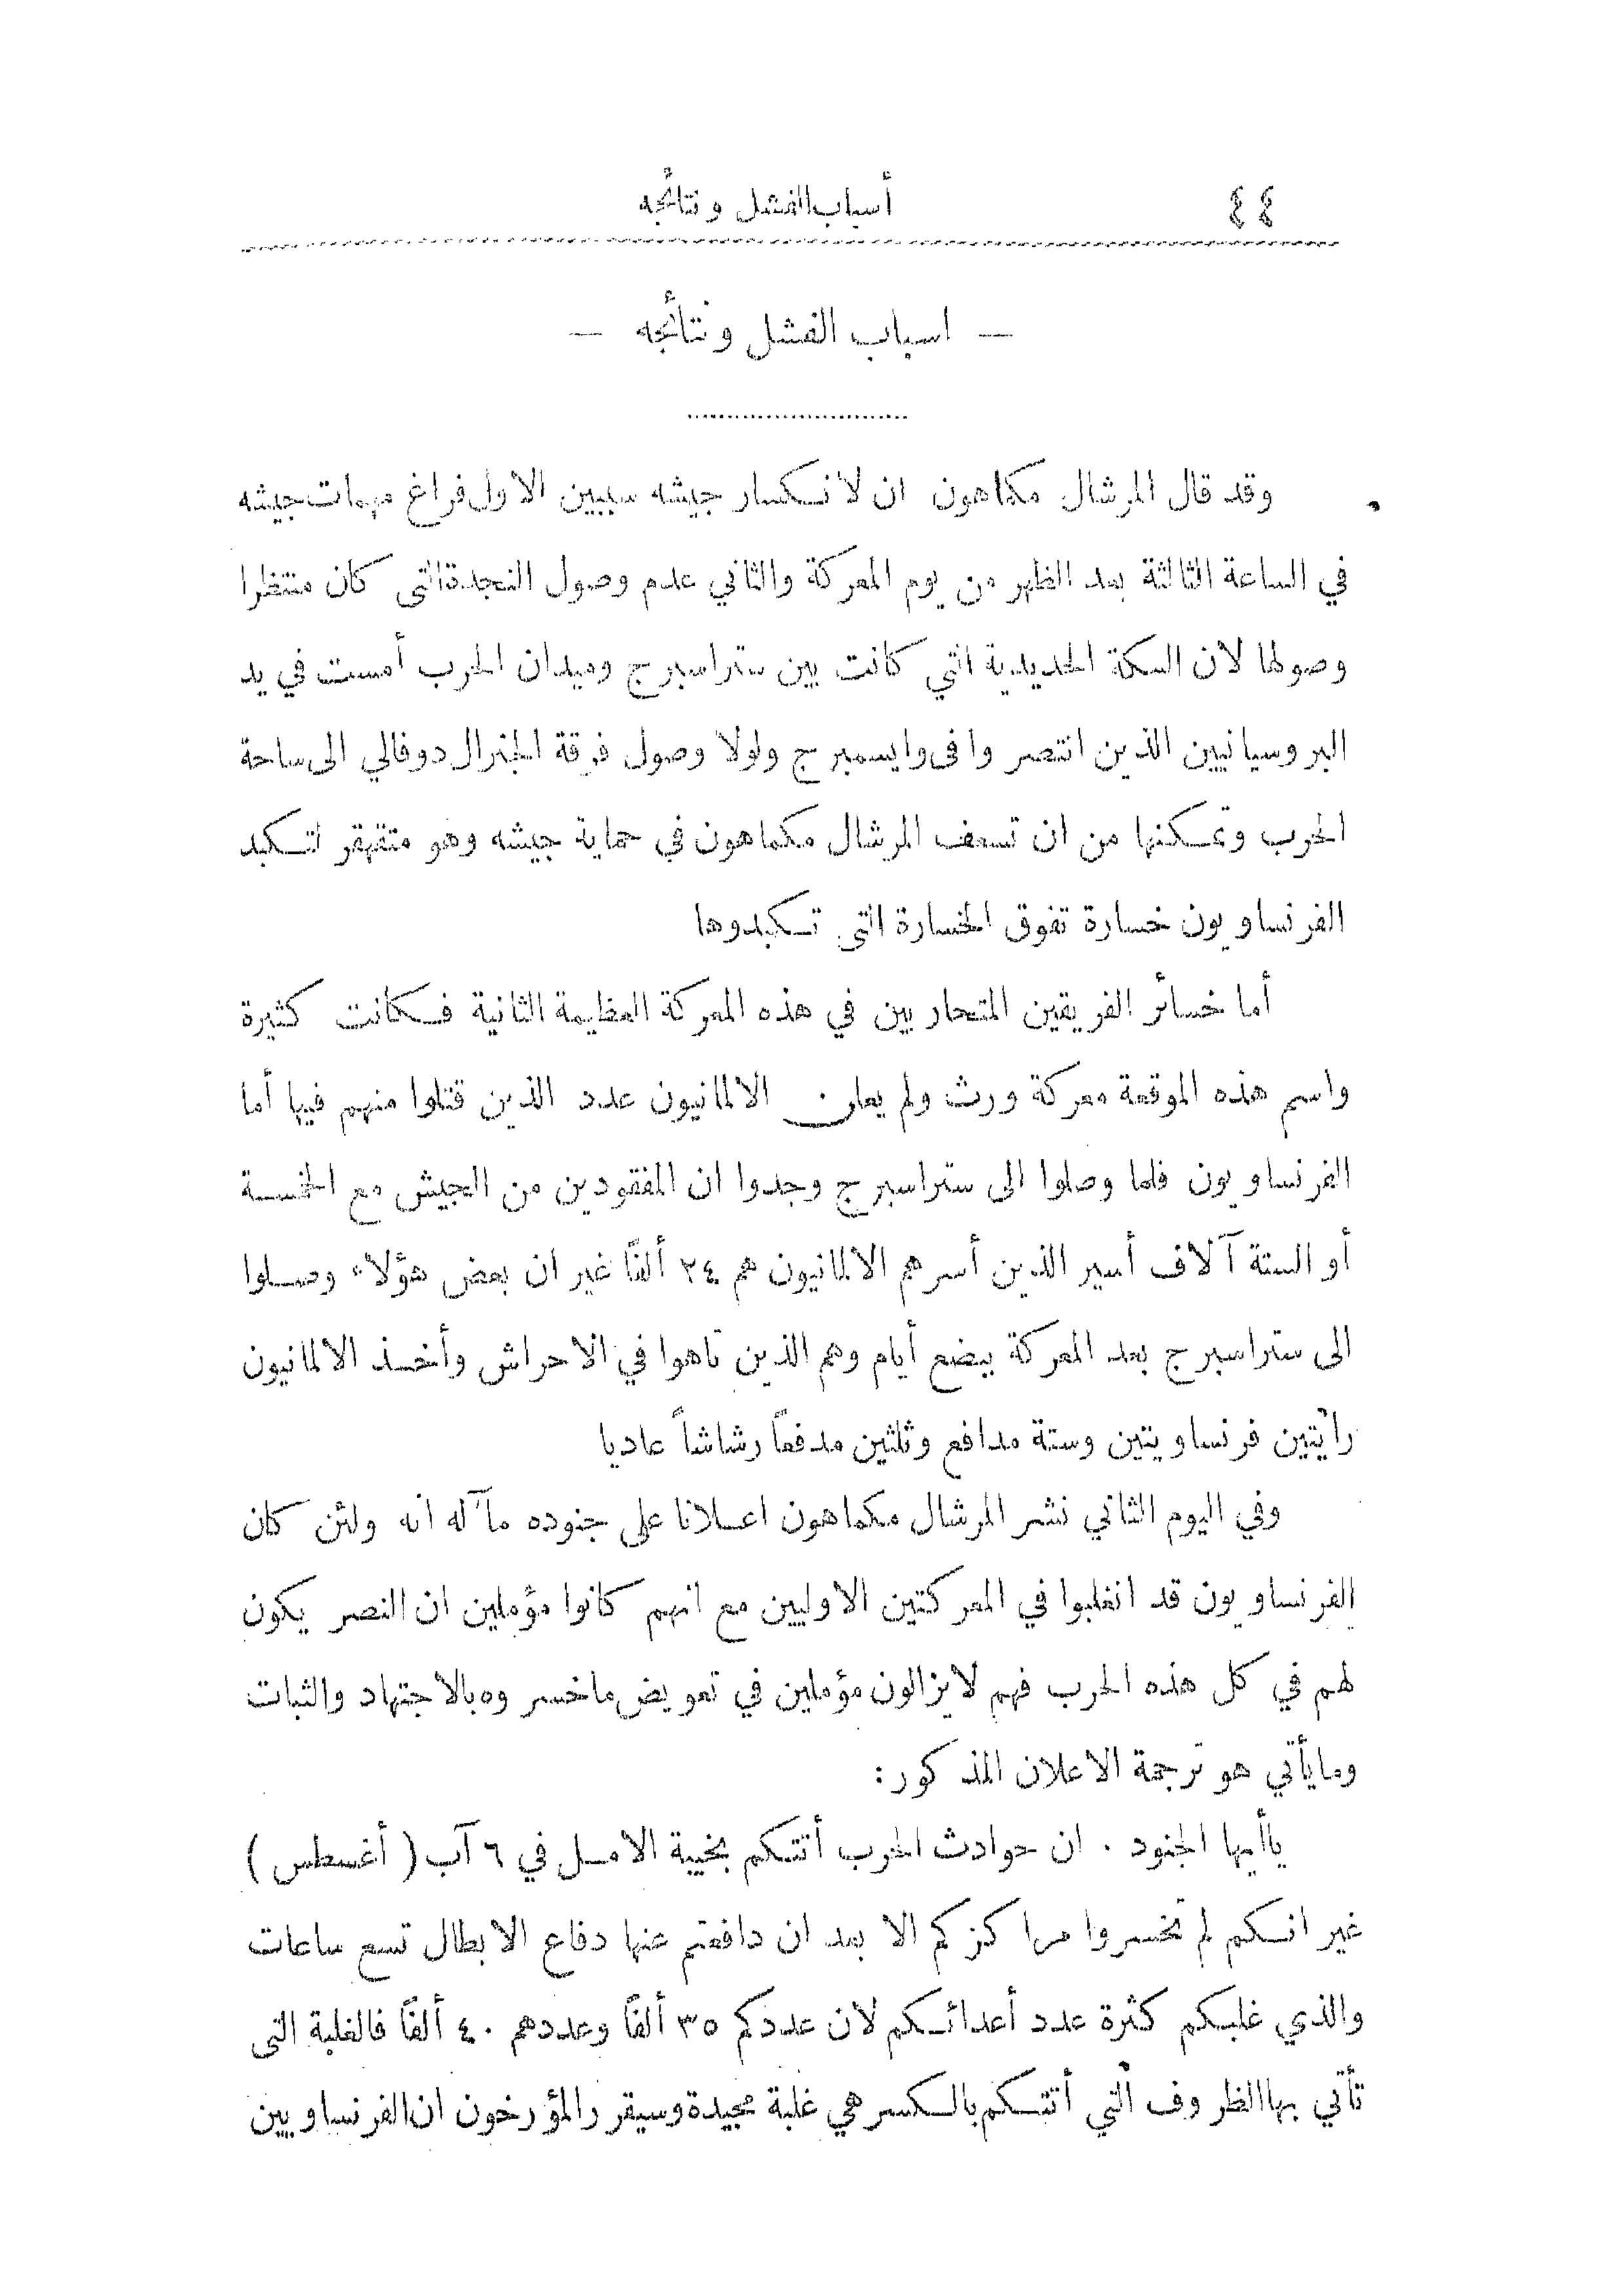 ٤٤
أسباب الفشل ونتائجه
— اسباب الفشل ونتائجه —
وقد قال المرشال مكماهون ان لانكسار جيشه سببين الاول فراغ مهمات جيشه
في الساعة الثالثة بعد الظهر من يوم المعركة والثاني عدم وصول النجدة التى كان منتظرا
وصولها لان السكة الحديدية التي كانت بين ستراسبرج وميدان الحرب أمست في يد
البروسيانيين الذين انتصروا فى وايسمبرج ولولا وصول فرقة الجنرال دوفالي الى ساحة
الحرب وتمكنها من ان تسعف المرشال مكماهون في حماية جيشه وهو متقهقر لتكبد
الفرنساويون خسارة تفوق الخسارة التى تكبدوها
أما خسائر الفريقين المتحاربين في هذه المعركة العظيمة الثانية فكانت كثيرة
واسم هذه الموقعة معركة ورث ولم يعلن الالمانيون عدد الذين قتلوا منهم فيها أما
الفرنساويون فلما وصلوا الى ستراسبرج وجدوا ان المفقودين من الجيش مع الخمسة
أو الستة آلاف أسير الذين أسرهم الالمانيون هم ٢٤ ألفاً غير ان بعض هؤلاء وصلوا
الى ستراسبرج بعد المعركة ببضع أيام وهم الذين تاهوا في الاحراش وأخذ الالمانيون
رايتين فرنساويتين وستة مدافع وثلثين مدفعاً رشاشاً عاديا
وفي اليوم الثاني نشر المرشال مكماهون اعلانا على جنوده مآله انه ولئن كان
الفرنساويون قد انغلبوا في المعركتين الاوليين مع انهم كانوا مؤملين ان النصر يكون
لهم في كل هذه الحرب فهم لايزالون مؤملين في تعويض ماخسروه بالاجتهاد والثبات
ومايأتي هو ترجمة الاعلان المذكور:
ياأيها الجنود . ان حوادث الحرب أتتكم بخيبة الامل في ٦ آب ( أغسطس )
غير انكم لم تخسروا مراكزكم الا بعد ان دافعتم عنها دفاع الابطال تسع ساعات
والذي غلبكم كثرة عدد أعدائكم لان عددكم ٣٥ ألفاً وعددهم ٤٠ ألفاً فالغلبة التى
تأتي بها الظروف التي أتتكم بالكسر هي غلبة مجيدة وسيقرر المؤرخون ان الفرنساويين